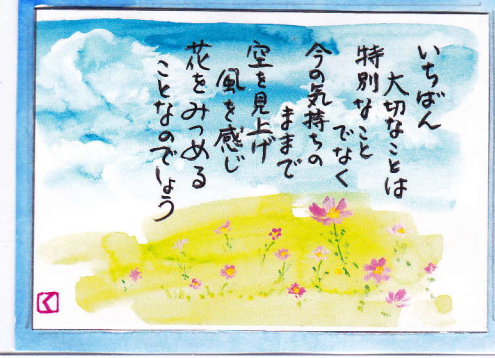 いちばん
大切なことは
特別なこと
でなく
今の気持ちの
ままで
空を見上げ
風を感じ
花をみつめる
ことなのでしょう
く